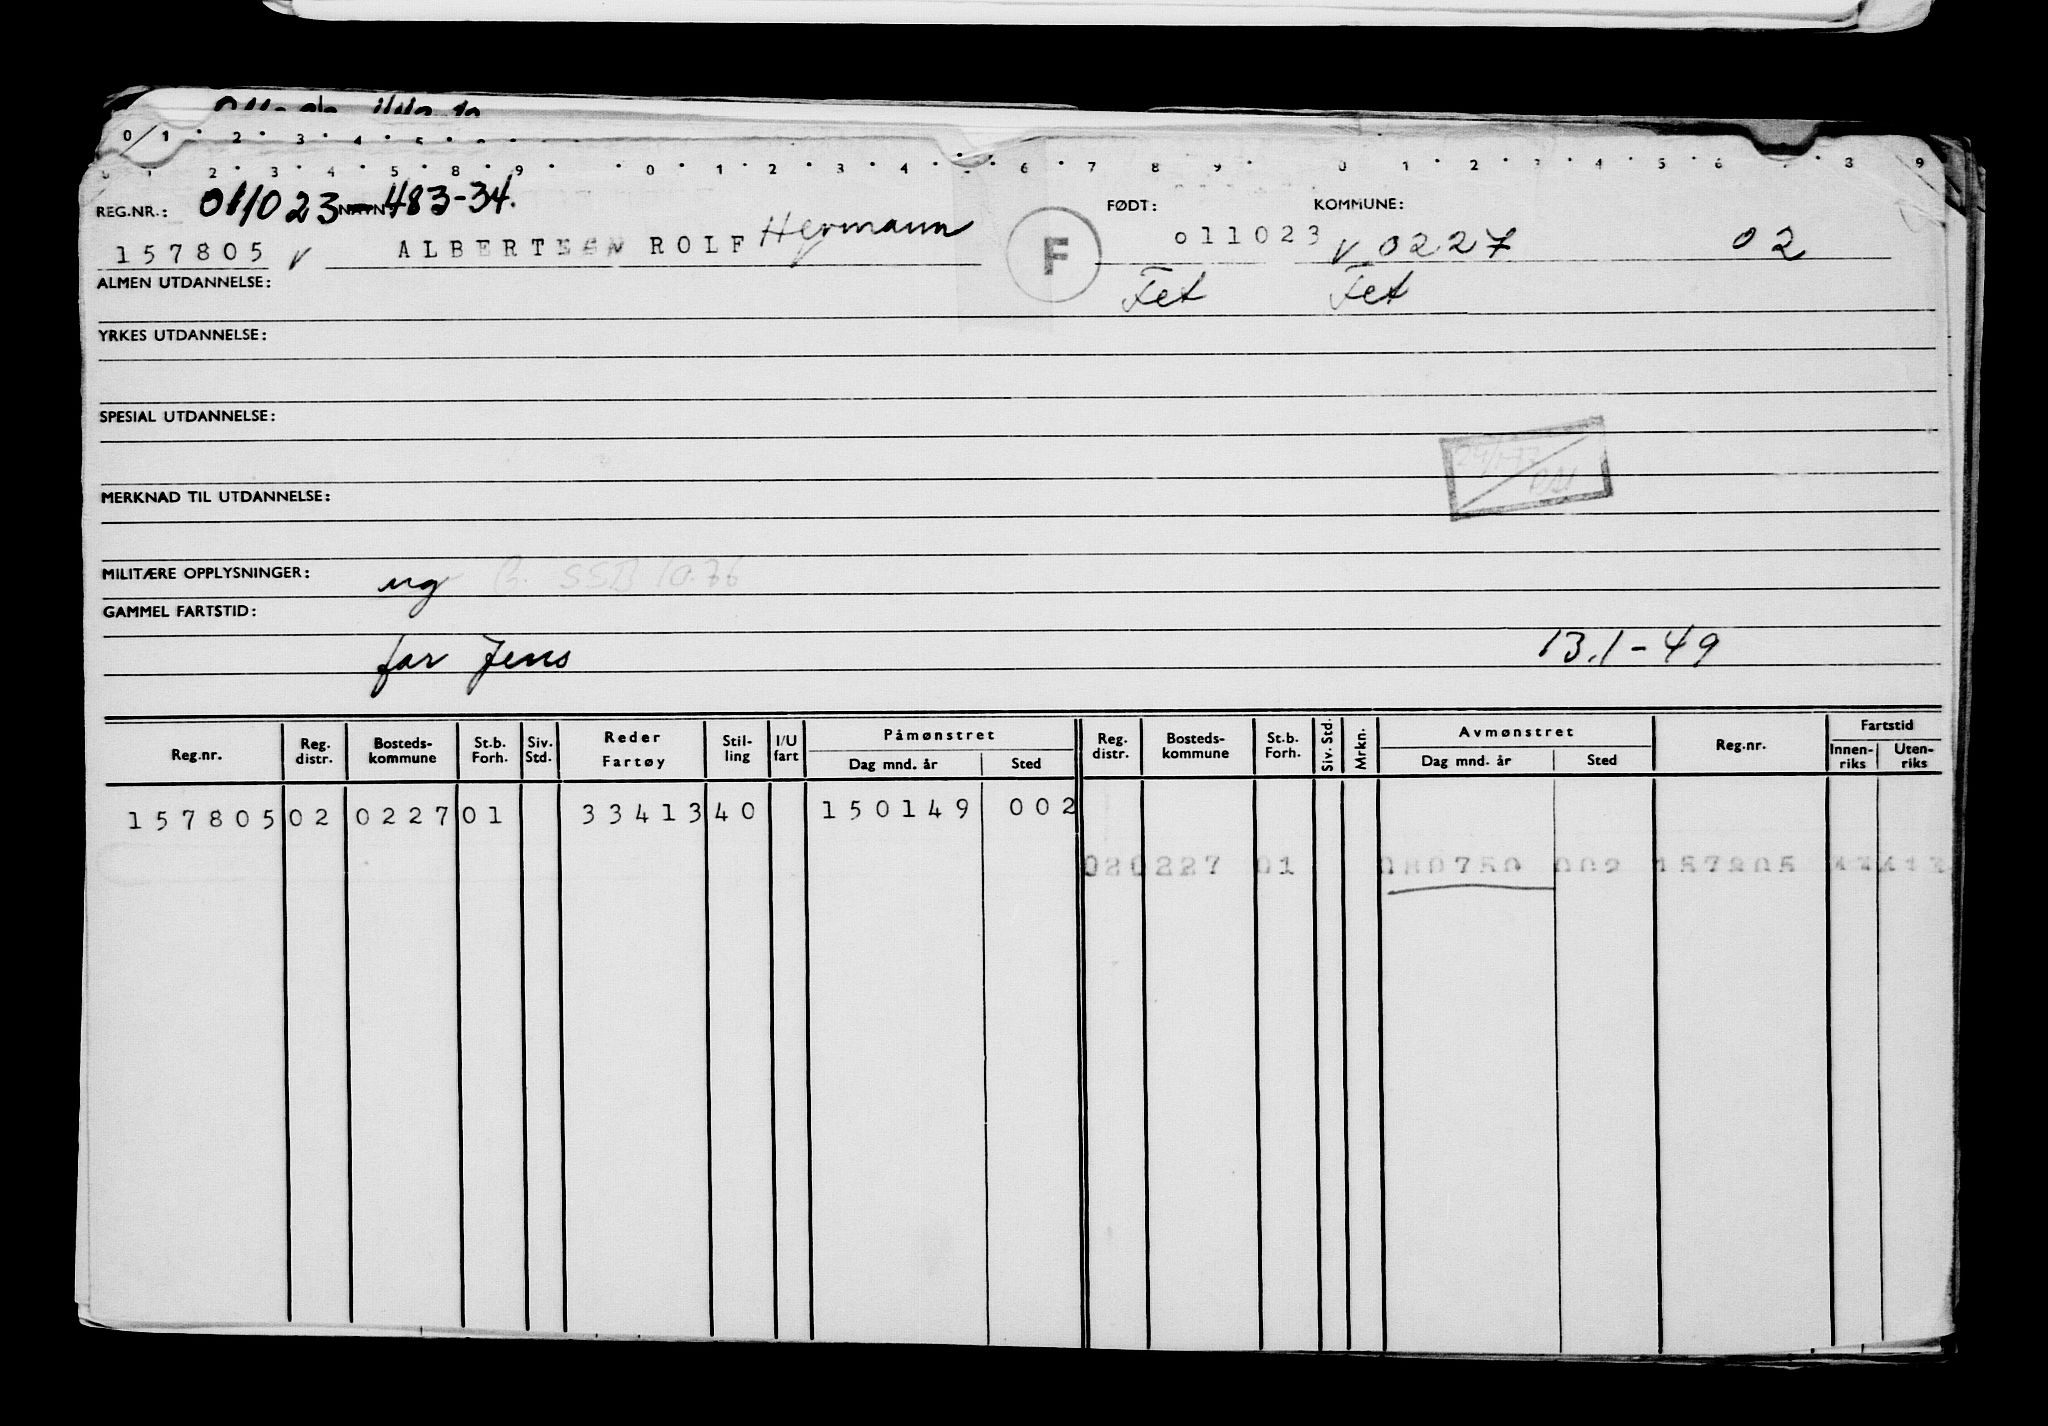 0 1 2 3 4 5
2 3 4 5 8 9 0 1 2 3 4 6 7 8 9 0 1 2 3 4 5 6 8 9
REG.NR.: 011023 NAVN 483-34. FØDT: KOMMUNE:
157805 v ALBERTSEN ROLF Hermann F 011023 v 0227 02
ALMEN UTDANNELSE: Fet Fet
YRKES UTDANNELSE:
SPESIAL UTDANNELSE:
MERKNAD TIL UTDANNELSE:
MILITÆRE OPPLYSNINGER: ug B. SSB 10.76
GAMMEL FARTSTID:
far Jens 13.1-49
Reg.nr. Reg. distr. Bosteds- kommune St.b. Forh. Siv. Std. Reder Fartøy Stil- ling I/U fart Påmønstret Dag mnd. år Sted Reg. distr. Bosteds- kommune St.b. Forh. Siv. Std. Mrkn. Avmønstret Dag mnd. år Sted Reg.nr. Fartstid Innen- riks Uten- riks
157805 02 0227 01 33413 40 150149 002
02 0227 01 080750 002 157805